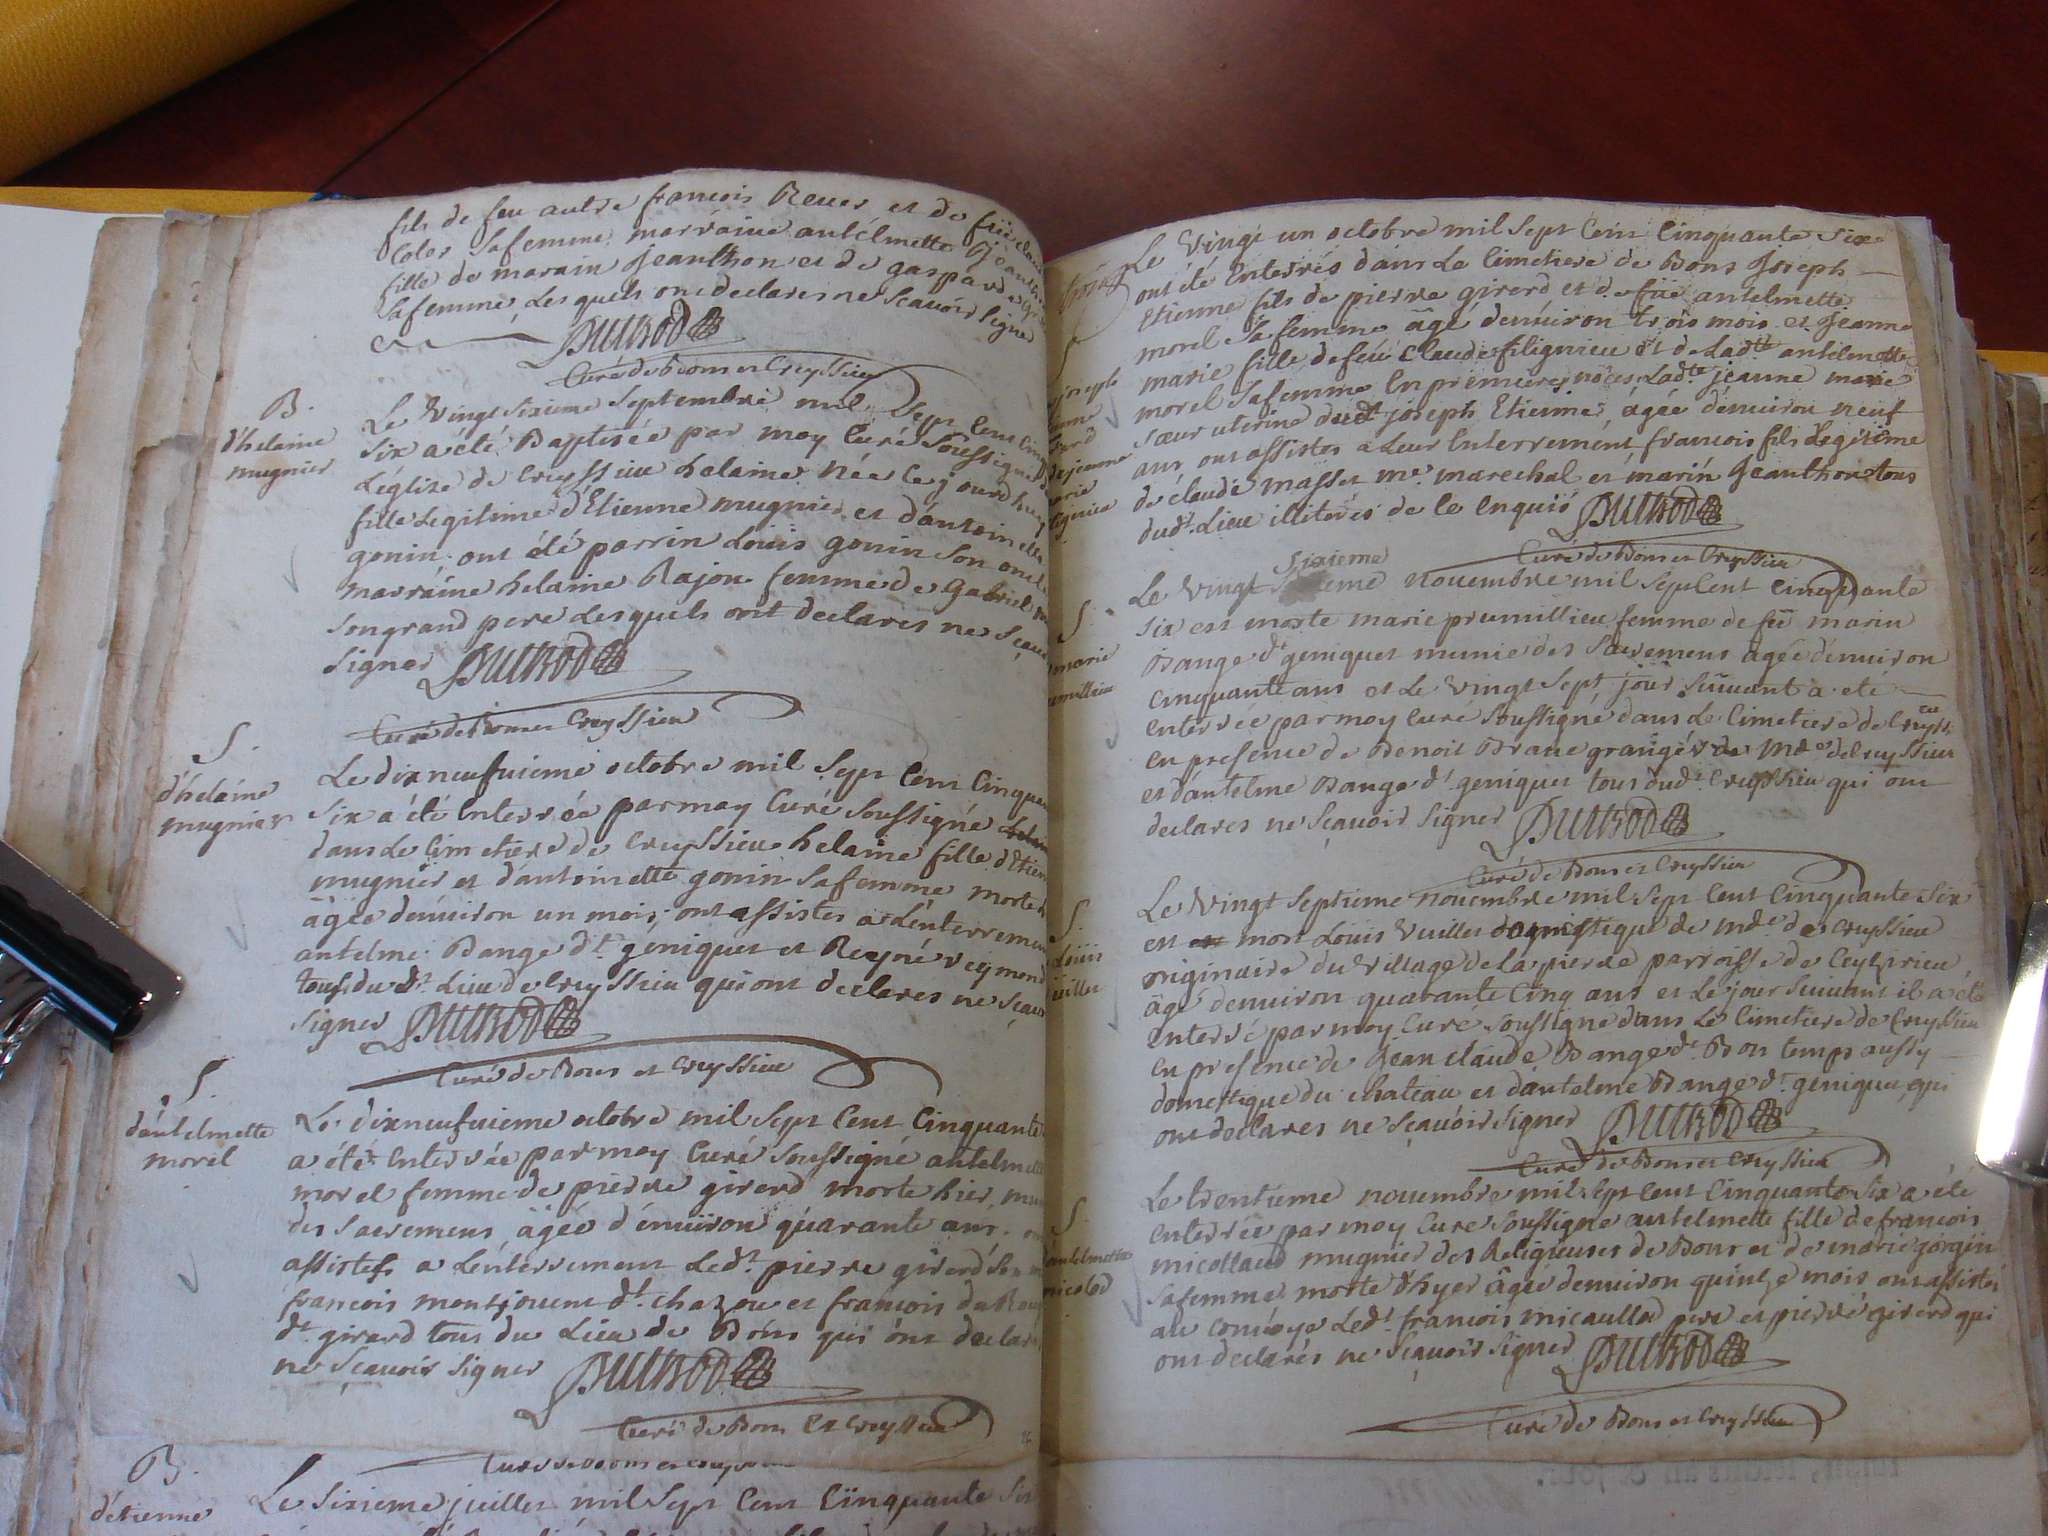 fils de feu autre francois Reuer et de füe
Coler Sa femme marraine antelmette
fille de marain Jeanthon et de gasparde
Sa femme, Lesquels ont declares ne Scavoir Signer
DUTROD
Curé de Bons et Creyssieu
B.
d'helaine
mugnier
Le Vingt Sixieme Septembre mil Sept Cent
Six a été Baptisée par moy Curé Soussigné
L'église de Creyssieu helaine Née
fille Legitime d'Etienne mugnier et d'antoinette
gonin, ont été parrin Louis gonin Son oncle
marraine helaine Rajon femme de Gabriel
Son grand pere Lesquels ont declares ne Sçavoir
Signer DUTROD
Curé de Bons et Creyssieu
S.
d'helaine
mugnier
Le dixneufuieme octobre mil Sept Cent Cinquante
Six a été Enterrée par moy Curé Soussigné
dans Le Cimetiere de Creyssieu helaine fille d'Etienne
mugnier et d'antoinette gonin Sa femme morte
âgée d'enuiron un mois, ont assistes a L'enterrement
antelme Bange dt. geniquet et Reymond
tous du dt. Lieu de Creyssieu qui ont declares ne Sçavoir
Signer DUTROD
Curé de Bons et Creyssieu
S.
d'antelmette
morel
Le dixneufuieme octobre mil Sept Cent Cinquante
a été Enterrée par moy Curé Soussigné antelmette
morel femme de pierre girerd morte hier,
des Sacremens âgée d'enuiron quarante ans.
assistes a L'enterrement Ledt. pierre girerd Son
francois montjouent dt. chazou et francois
dt. girard tous du Lieu de Bons qui ont declares
ne Sçavoir Signer DUTROD
Curé de Bons Et Creyssieu
B.
d'etienne
Le Sixieme juillet mil Sept Cent Cinquante Six
Le Vingt un octobre mil Sept Cent Cinquante Six
ont été Enterrés dans Le Cimetiere de Bons Joseph
Etienne fils de pierre girerd et de füe antelmette
morel Sa femme âgé d'enuiron trois mois et Jeanne
marie fille de feü Claude filignieu et de Ladtte. antelmette
morel Sa femme En premieres nôces, Ladte. jeanne marie
Sœur uterine dudt. joseph Etienne, âgée d'enuiron neuf
ans, ont assistes a Leur Enterrement francois fils Legitime
de claude masset me. marechal et marin Jeanthon tous
dudt. Lieu illiterés de Ce Enquis DUTROD
Curé de Bons et Creyssieu
S.
marie
Sixieme
Le Vingt novembre mil Sept Cent Cinquante
Six est morte marie prumillieu femme de feü marin
Bange dt. geniquet munie des Sacremens agée d'enuiron
Cinquante ans et Le Vingt Sept jour Suiuant a été
Enterrée par moy Curé Soussigné dans Le Cimetiere de Creyssieu
En presence de Benoit Brane granger de Mde. de Creyssieu
et d'antelme Bange dt. geniquet tous dudt. Creyssieu qui ont
declares ne Sçavoir Signer DUTROD
Curé de Bons et Creyssieu
S.
Louis
uiller
Le Vingt Septieme novembre mil Sept Cent Cinquante Six
est mort Louis Vuiller domestique de Mde. de Creyssieu
originaire du Village de La pierre parroisse de Ceyzirieu
âgé d'enuiron quarante Cinq ans et Le jour Suiuant il a été
Enterré par moy Curé Soussigné dans Le Cimetiere de Creyssieu
En presence de Jean claude Bange dt. Bon temps aussy
domestique du chateau et d'antelme Bange dt. geniquet, qui
ont declares ne Sçavoir Signer DUTROD
Curé de Bons et Creyssieu
S.
d'antelmette
micolod
Le trentieme novembre mil Sept Cent Cinquante Six a été
Enterrée par moy Curé Soussigné antelmette fille de francois
micollaud mugnier des Religieuses de Bons et de marie gorgin
Sa femme morte d'hyer âgée d'enuiron quinze mois ont assistés
au Convoye Ledt. francois micaullod pere et pierre girerd qui
ont declarés ne Sçavoir Signer DUTROD
Curé de Bons et Creyssieu